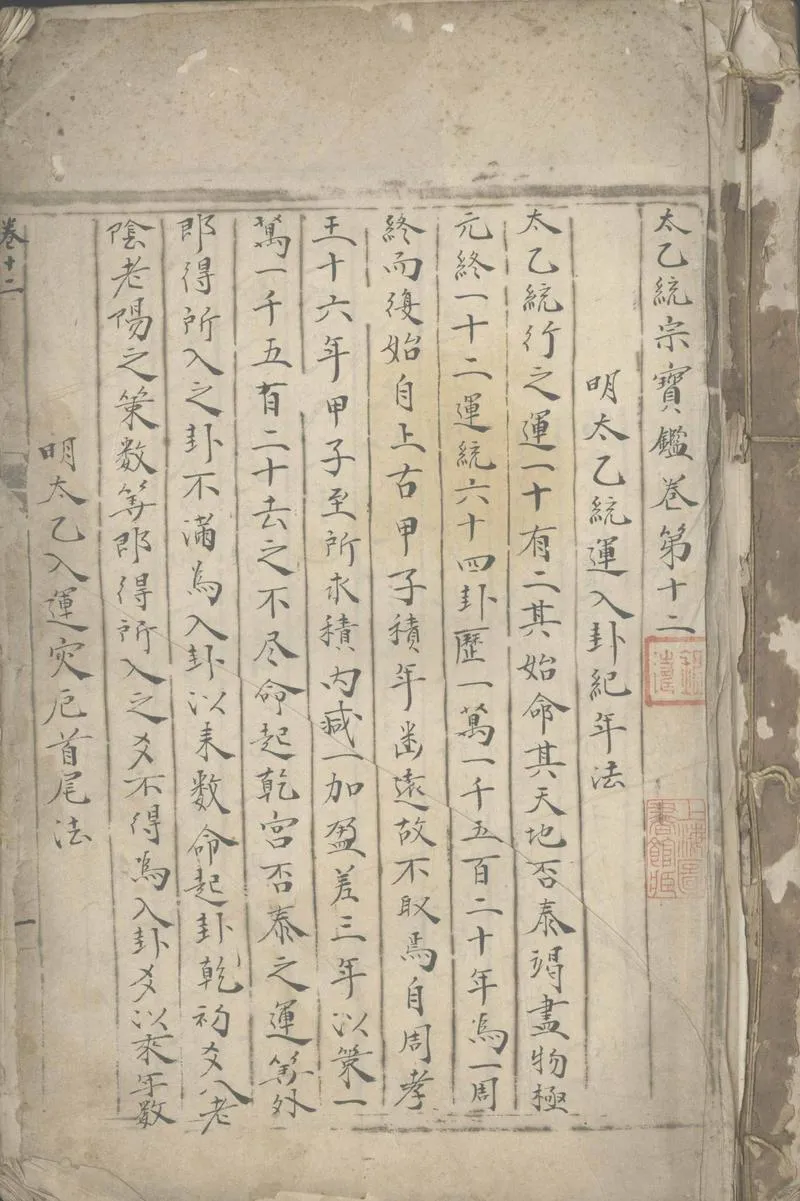 太乙統宗寶鑑卷第十二
明太乙統運入卦紀年法
太乙統行之運一十有二其始命其天地否泰竭盡物極
元終一十二運統六十四卦歷一萬一千五百二十年為一周
終而復始自上古甲子積年甚遠故不取焉自周孝
王十六年甲子至所求積內減一加盈差三年以策一
萬一千五百有二十去之不尽命起乾宮否泰之運筭外
即得所入之卦不滿為入卦以來數命起卦乾初爻八老
陰老陽之策數筭即得所入之爻不得為入卦爻以來年數
明太乙入運灾厄首尾法
卷十二
一
上海圖書館藏